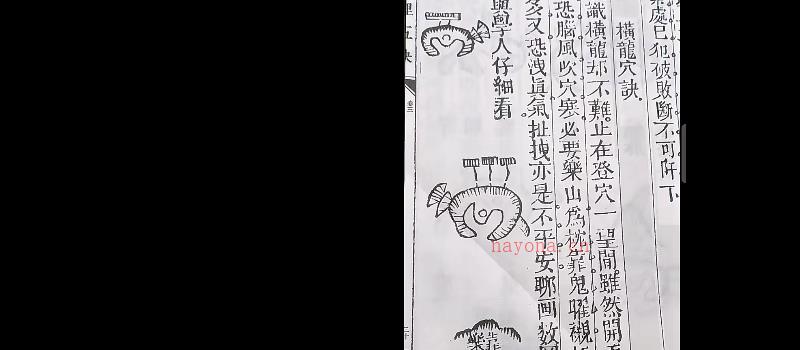 處已犯破敗斷不可阡下
橫龍穴訣
識橫龍却不難止在登穴一望閒雖然開
恐腦風吹穴寒必要樂山為枕靠鬼曜襯
多又恐洩眞氣扯拽亦是不平安聊画数
與學人仔細看
理五訣
卷三
樂靠
hayona.cn